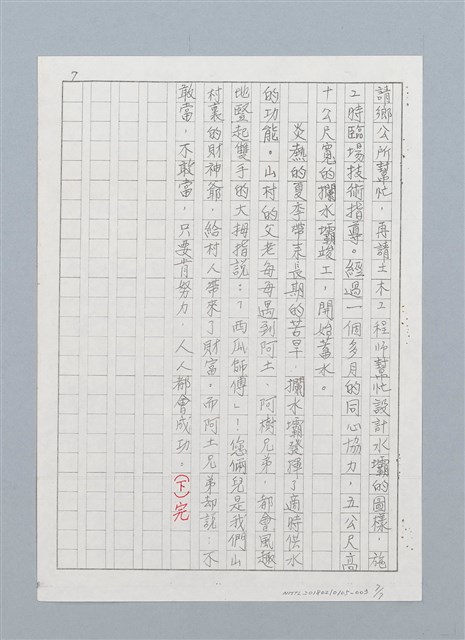 7
請鄉公所幫忙，再請土木工程師幫忙設計水壩的圖樣，施
工時臨場技術指導。經過一個多月的同心協力，五公尺高
十公尺寬的攔水壩竣工，開始蓄水。
炎熱的夏季帶來長期的苦旱，攔水壩發揮了適時供水
的功能。山村的父老每每遇到阿土、阿樹兄弟，都會風趣
地豎起雙手的大拇指說：「西瓜師傅」！您倆兒是我們山
村裏的財神爺，給村人帶來了財富。而阿土兄弟却說：不
敢當，不敢當，只要肯努力，人人都會成功。(下)完
7/7